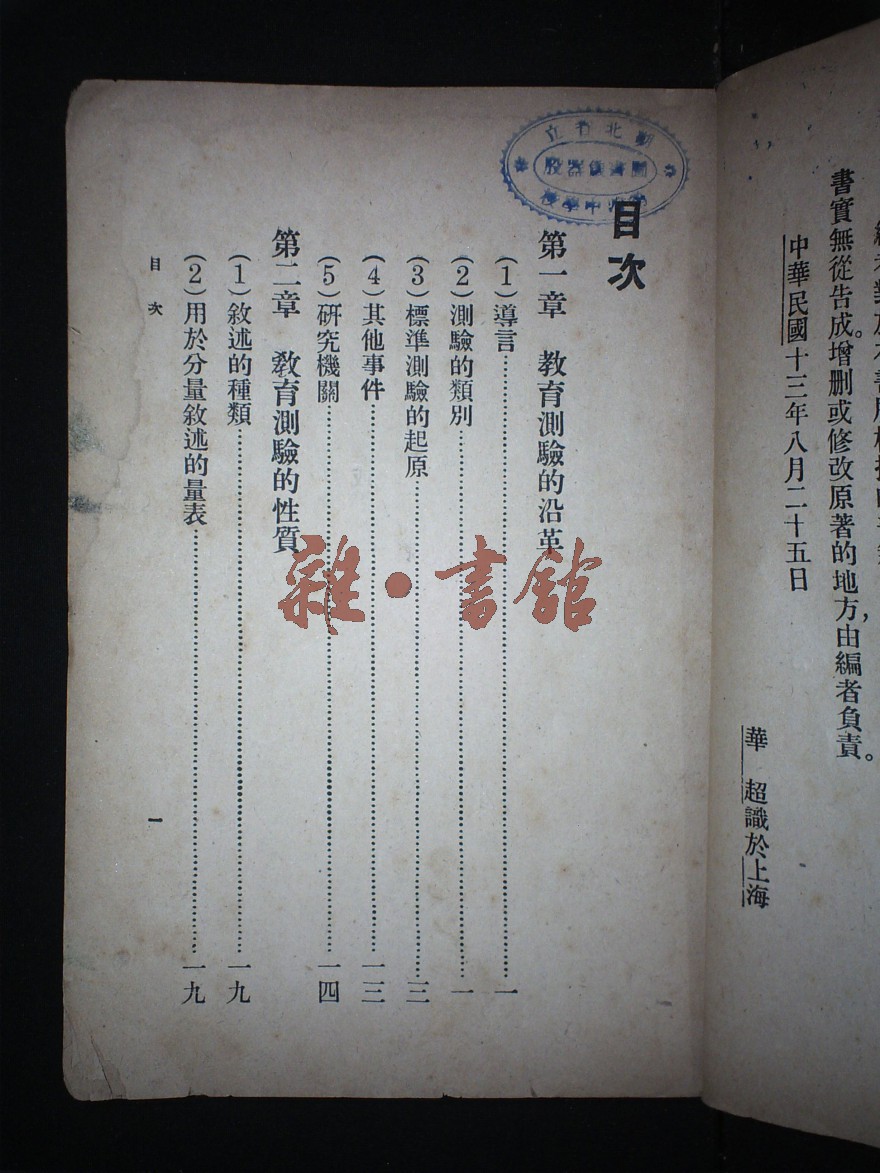 書實無從告成。增刪或修改原著的地方,由編者負責。
中華民國十三年八月二十五日
華 超識於上海
目次
第一章 教育測驗的沿革
(1)導言…………一
(2)測驗的類別…………一
(3)標準測驗的起原…………三
(4)其他事件…………一三
(5)研究機關…………一四
第二章 教育測驗的性質
(1)敘述的種類…………一九
(2)用於分量敘述的量表…………一九
目次
一
雜·書館